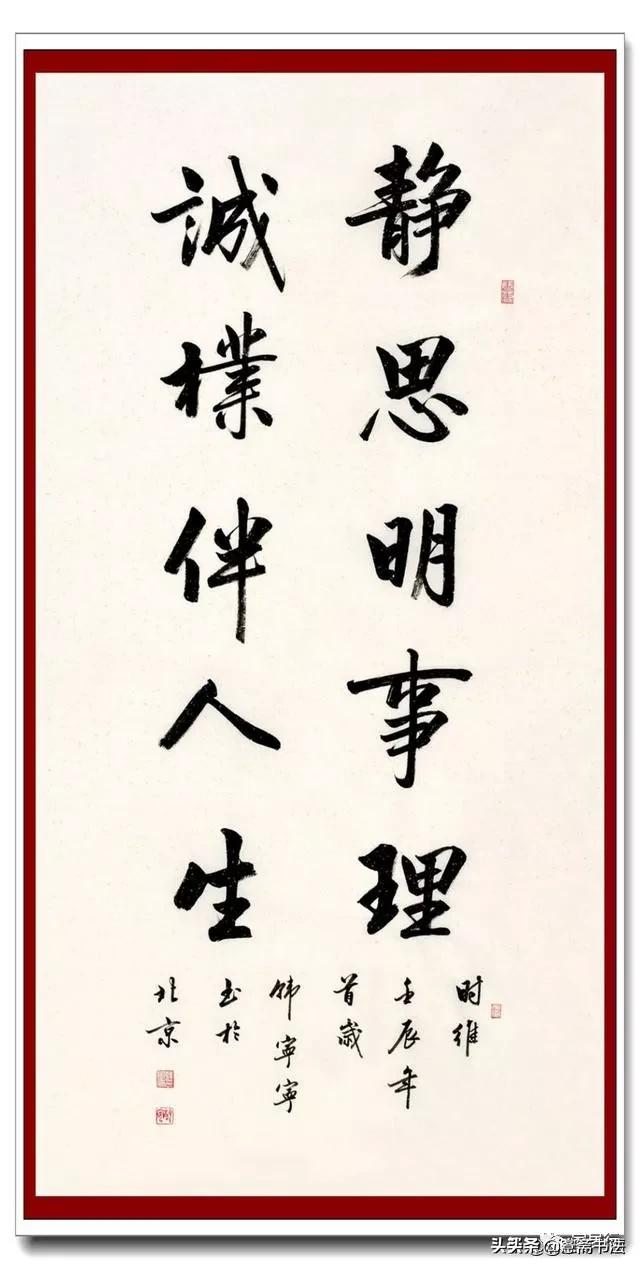 静思明事理
誠樸伴人生
时维
壬辰年
首歲
韩寧寧
书於
北京
头条 斋书法